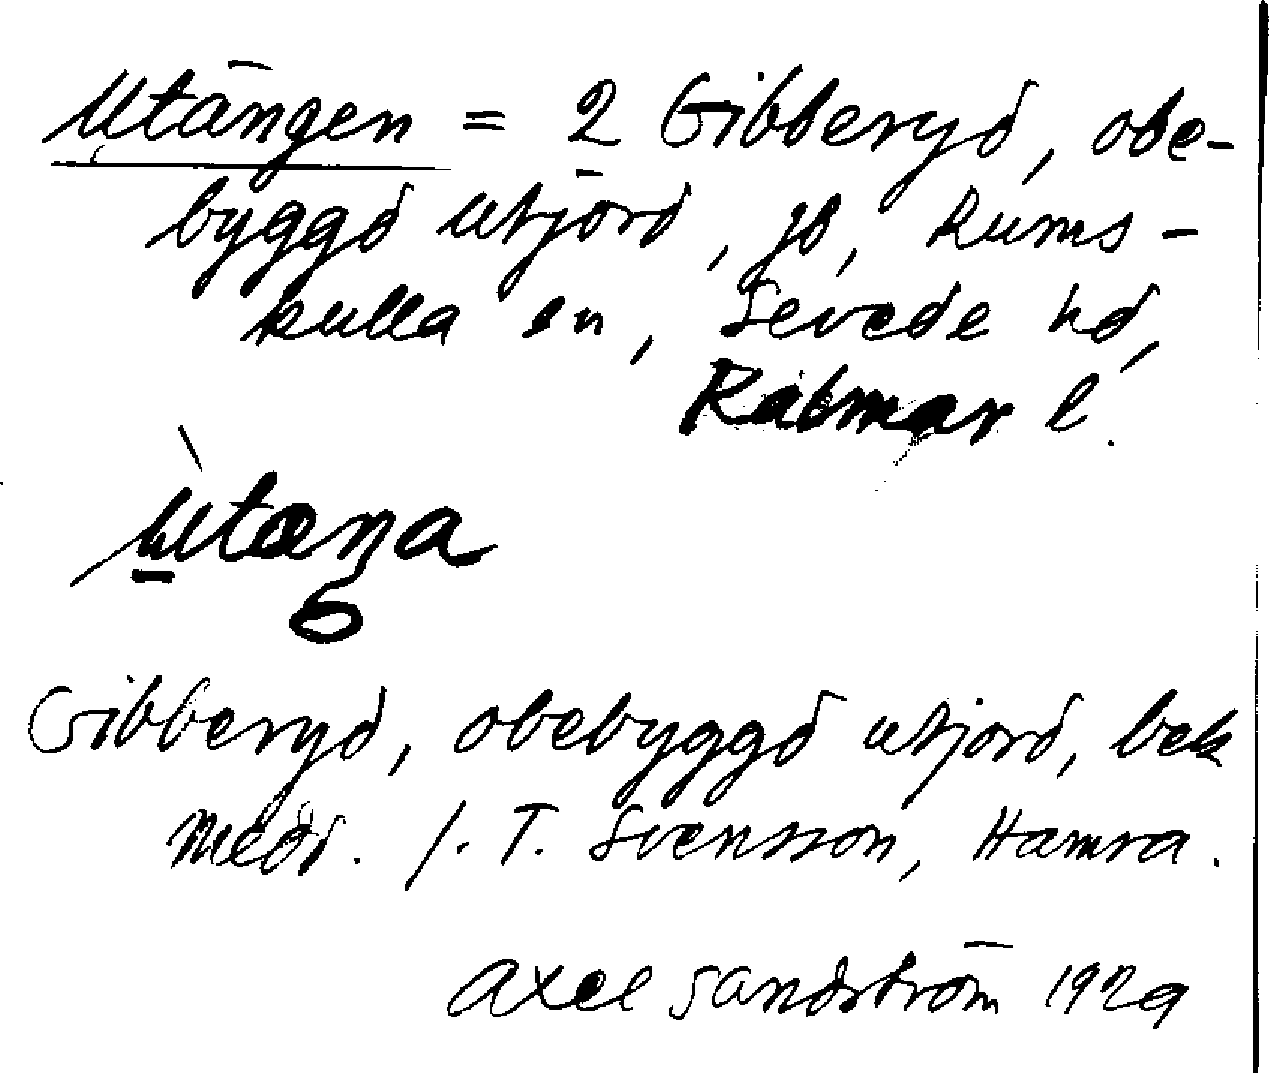 Utängen = 2 Gibberyd, obe-
byggd utjord, jb, Rums-
kulla sn, Sevede hd,
Kalmar l.
Gibberyd, obebyggd utjord, bek
medd. J. T. Svensson, Hamra.
Axel Sandström 1929